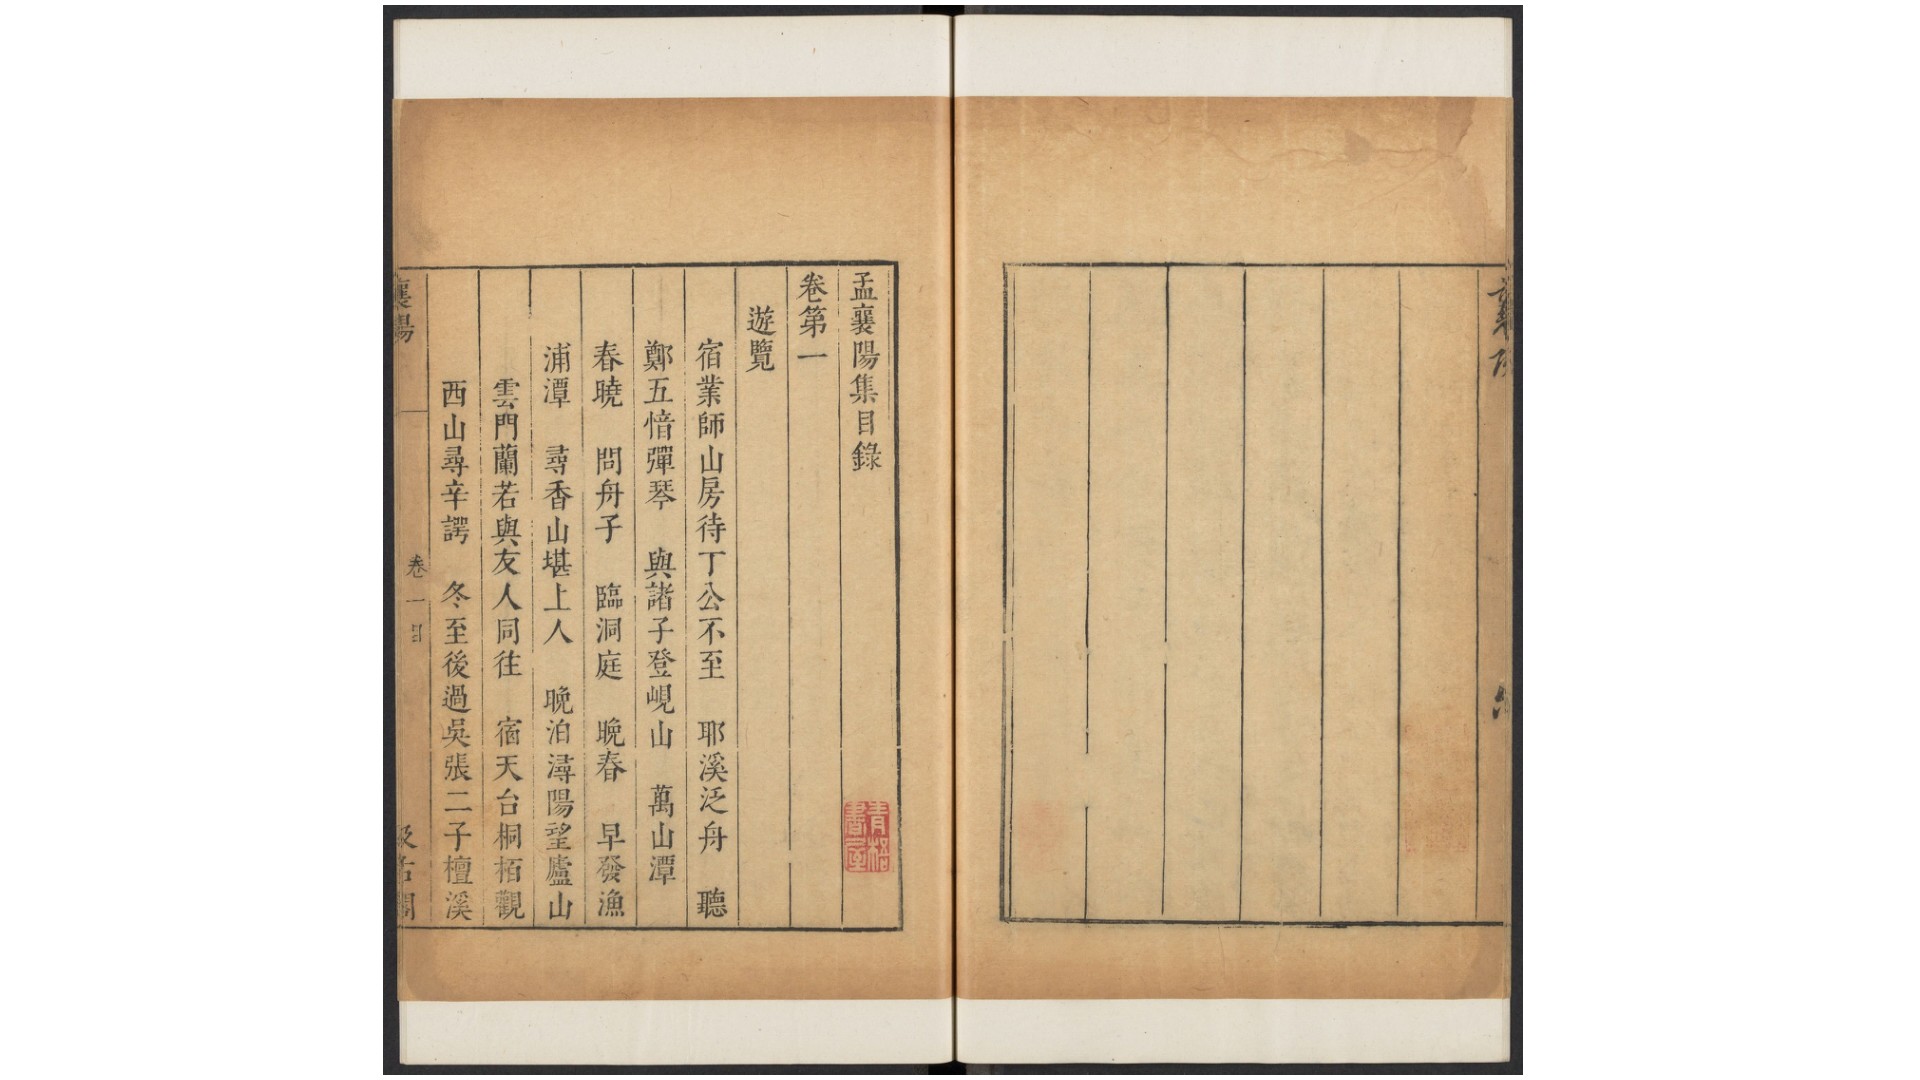 襄陽
孟襄陽集目錄
卷第一
遊覽
宿業師山房待丁公不至 耶溪泛舟 聽
鄭五愔彈琴 與諸子登峴山 萬山潭
春曉 問舟子 臨洞庭 晚春 早發漁
浦潭 尋香山堪上人 晚泊潯陽望廬山
雲門蘭若與友人同往 宿天台桐栢觀
西山尋辛諤 冬至後過吳張二子檀溪
襄陽
卷一目
汲古閣
青棆書屋